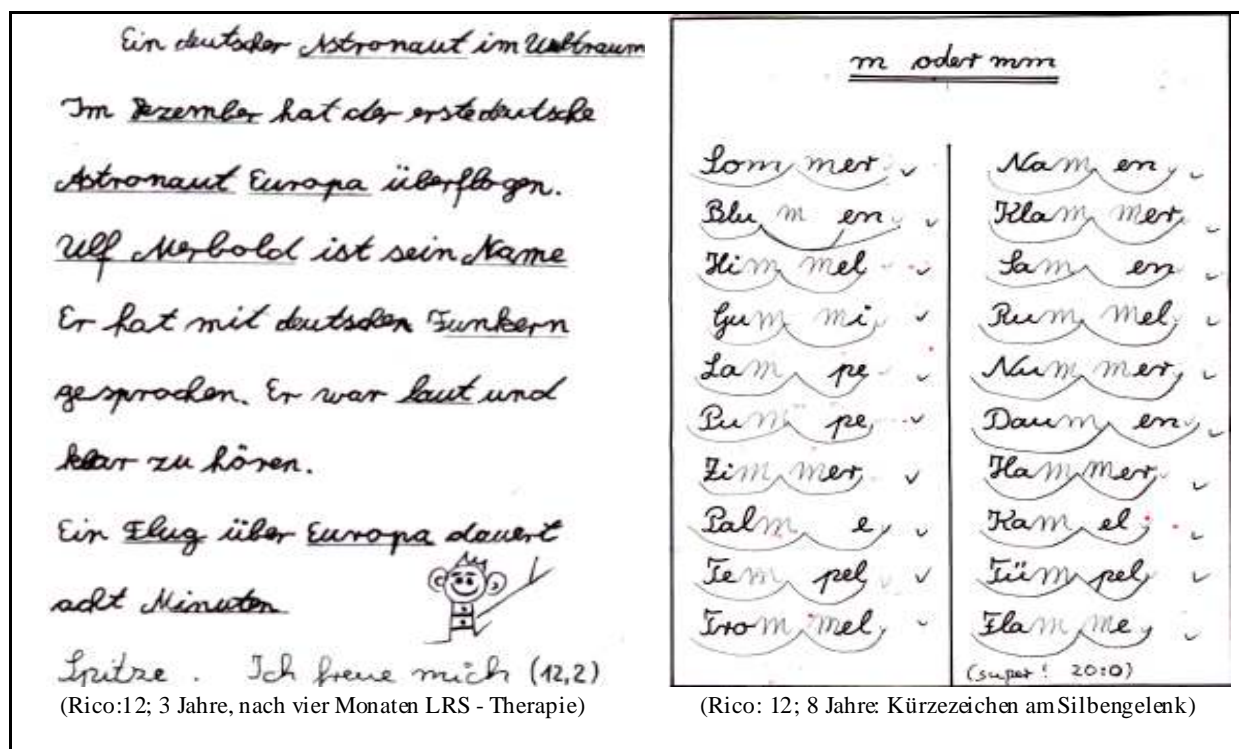 Ein deutscher Astronaut im Weltraum
Im Dezember hat der erste deutsche
Astronaut Europa überflogen.
Ulf Merbold ist sein Name
Er hat mit deutschen Funkern
gesprochen. Er war laut und
klar zu hören.
Ein Flug über Europa dauert
acht Minuten
Spitze. Ich freue mich (12,2)
(Rico:12; 3 Jahre, nach vier Monaten LRS - Therapie)
m oder mm
Som mer
Blu m en
Him mel
Gum mi
Lam pe
Pum pe
Zim mer
Palm e
Tem pel
Trom mel
Nam en
Klam mer
Sam en
Rum mel
Num mer
Daum en
Ham mer
Kam el
Tüm pel
Flam me
(super! 20:0)
(Rico: 12; 8 Jahre: Kürzezeichen am Silbengelenk)